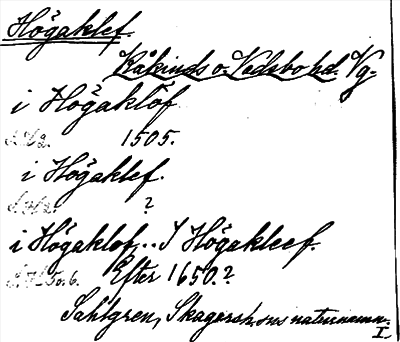 Högaklef.
Kåkinds o. Vadsbo hd. Vg.
i Högaklof
1505.
i Högaklef.
?
i Högaklof... I Högakleef.
Efter 1650.?
Sahlgren, Skagersh:sns naturnamn.
I.